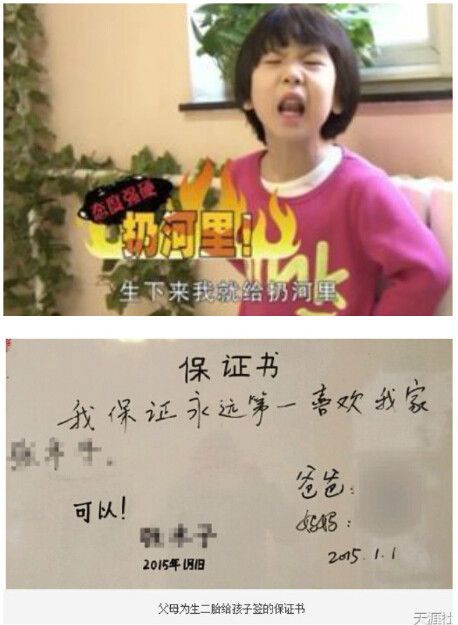 态度强硬
扔河里!
nk
生下来我就给扔河里
保证书
我保证永远第一喜欢我家
爸爸:
可以!
妈妈:
2015.1.1
2015年1月1日
父母为生二胎给孩子签的保证书
天涯社